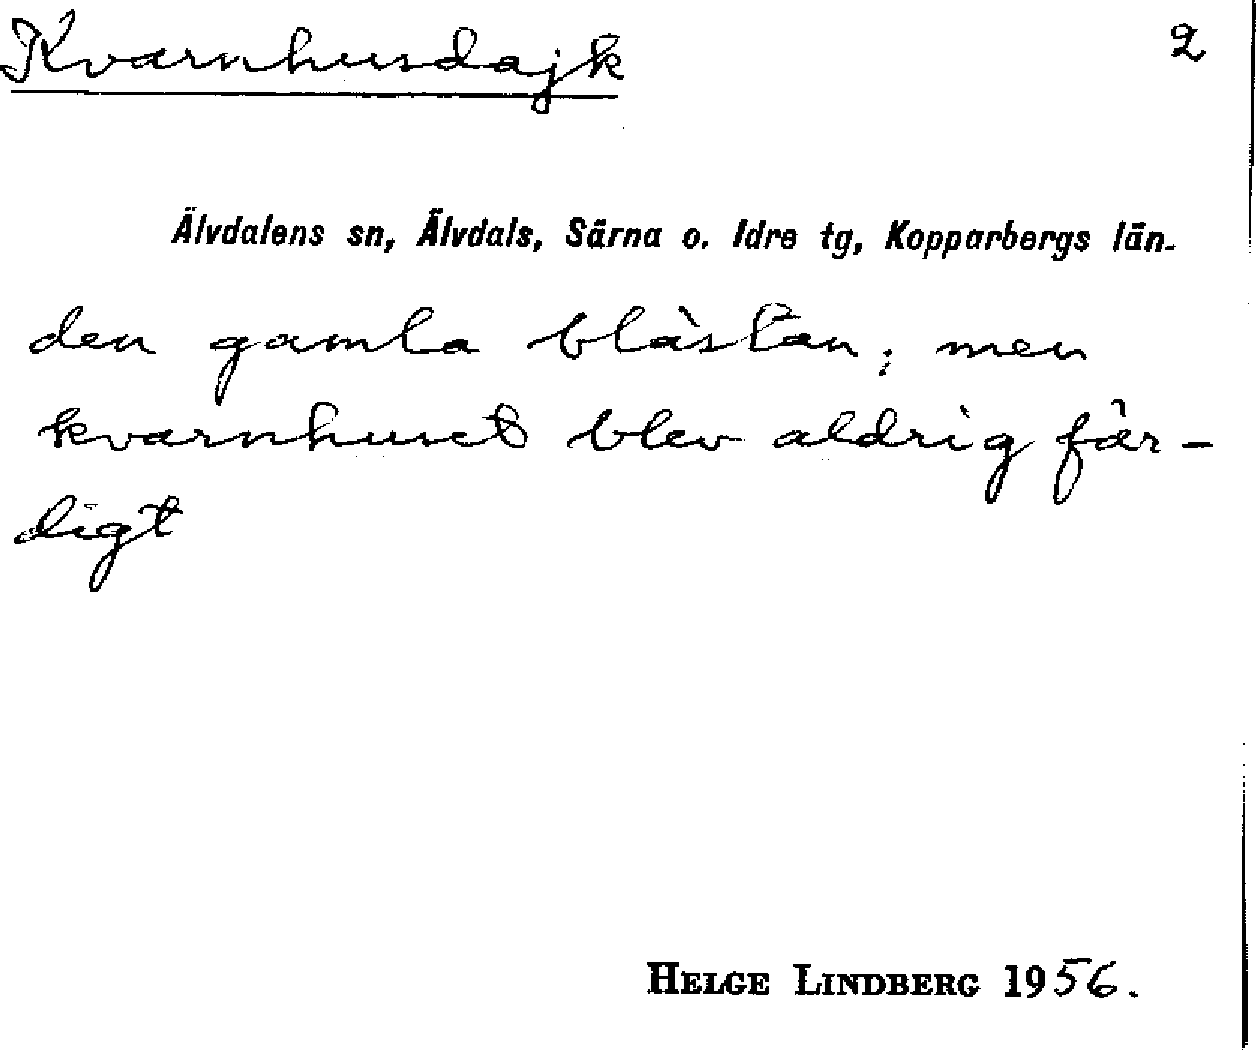 Kvarnhusdajk 2
Älvdalens sn, Älvdals, Särna o. Idre tg, Kopparbergs län.
den gamla blästan; men
kvarnhuset blev aldrig fär-
digt
HELGE LINDBERG 1956.